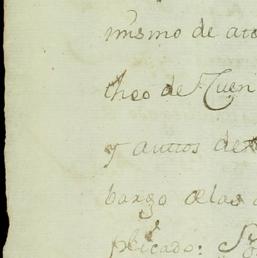 mismo de ato
theo de Cuen
y autos de
bargo de las
plicado: